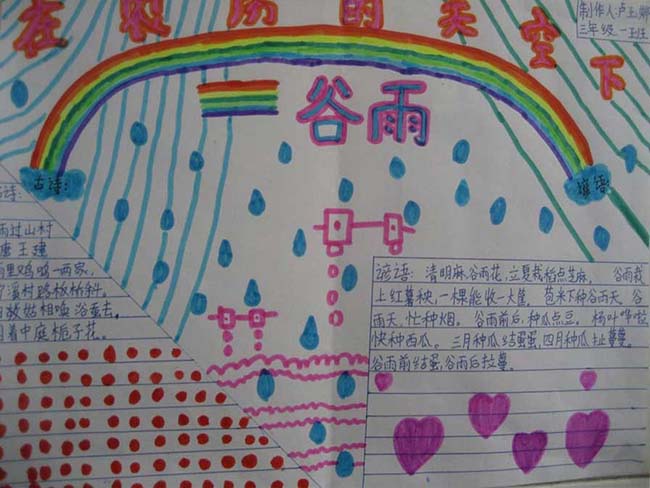 在农历的天空下
制作人:卢玉
三年级一班
谷雨
古诗:
谚语:
古诗:
雨过山村
唐 王建
雨里鸡鸣一两家,
溪村路板桥斜。
姑相唤浴蚕去,
着中庭栀子花。
谚语:清明麻,谷雨花,立夏栽稻点芝麻。 谷雨栽
上红薯秧,一棵能收一大筐。 苞米下种谷雨天。谷
雨天,忙种烟。 谷雨前后,种瓜点豆。 杨叶哗啦
快种西瓜。 三月种瓜结蛋蛋,四月种瓜扯蔓蔓。
谷雨前结蛋,谷雨后拉蔓。